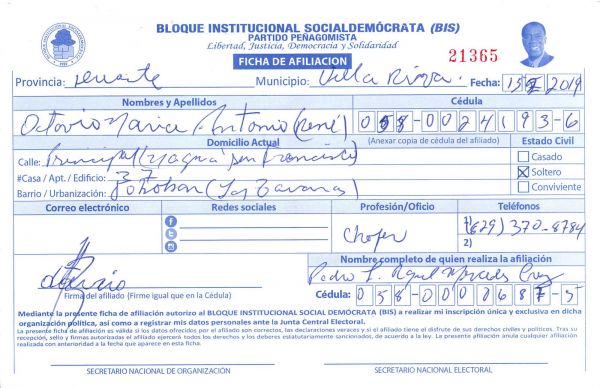 BLOQUE INSTITUCIONAL SOCIALDEMÓCRATA (BIS)
PARTIDO PEÑAGOMISTA
Libertad, Justicia, Democracia y Solidaridad
FICHA DE AFILIACION
21365
Provincia: Duarte Municipio: Villa Riva. Fecha: 15 2019
Nombres y Apellidos Cédula
Octavio María Antonio (René) 0 5 8-0 0 2 4 1 9 3-6
Domicilio Actual (Anexar copia de cédula del afiliado) Estado Civil
Calle: Principal (Yagua San Francisco) Casado
#Casa / Apt. / Edificio: 37 Soltero
Barrio / Urbanización: (Las Tavaras) Conviviente
Correo electrónico Redes sociales Profesión/Oficio Teléfonos
Chofer 1) (829) 370-8784
2)
Nombre completo de quien realiza la afiliación
Pedro Mercedes Cruz
Firma del afiliado (Firme igual que en la Cédula) Cédula: 0 5 8-0 0 0
Mediante la presente ficha de afiliación autorizo al BLOQUE INSTITUCIONAL SOCIAL DEMÓCRATA (BIS) a realizar mi inscripción única y exclusiva en dicha
organización política, así como a registrar mis datos personales ante la Junta Central Electoral.
La presente ficha de afiliación es válida si los datos ofrecidos por el afiliado son correctos, las declaraciones veraces y si el afiliado tiene el disfrute de sus derechos civiles y políticos. Tras su
recepción, sello y firmas autorizadas el afiliado ejercerá todos los derechos y los deberes estatutariamente sancionados, de acuerdo a la ley. La presente afiliación anula cualquier afiliación
realizada con anterioridad a la fecha que aparece en esta ficha.
SECRETARIO NACIONAL DE ORGANIZACIÓN SECRETARIO NACIONAL ELECTORAL